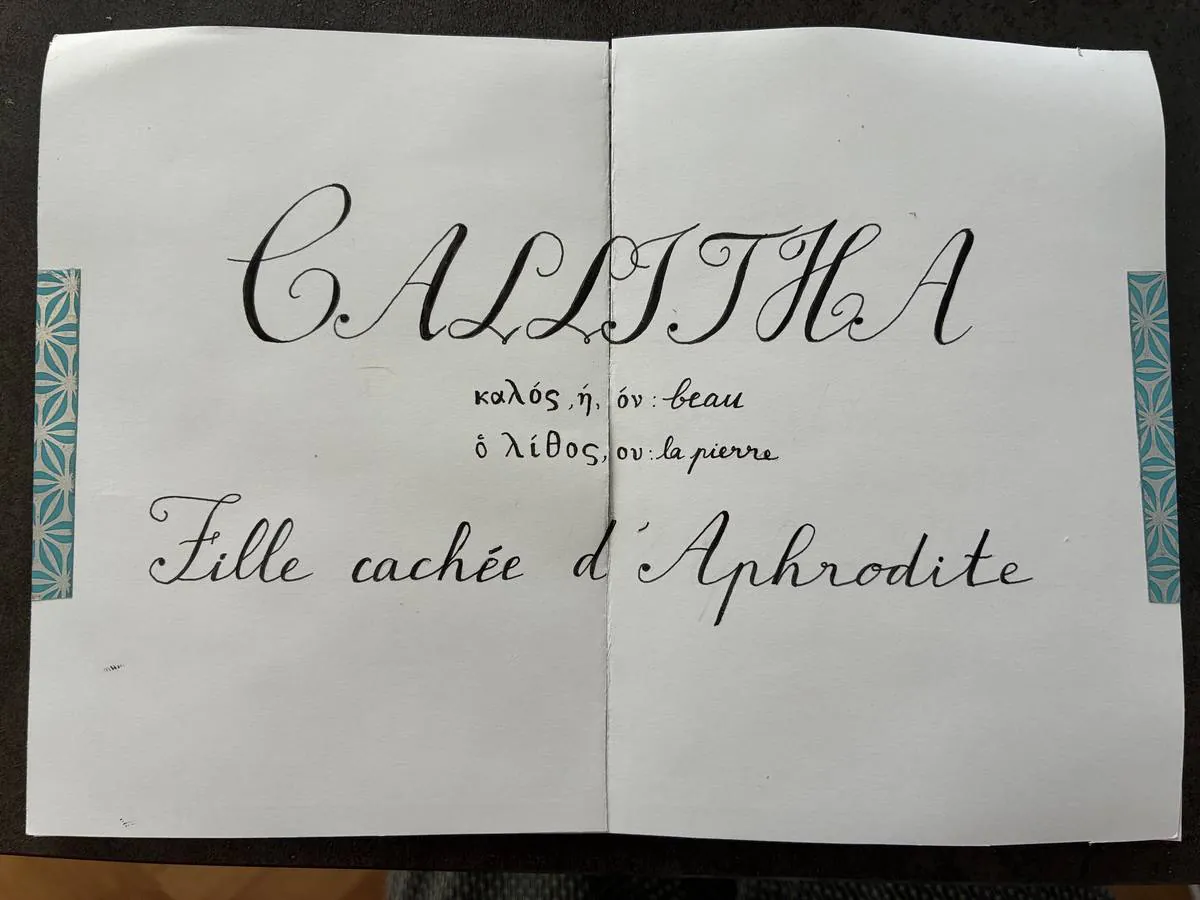 CALLITHA
καλός, ή, όν : beau
ὅ λίθος, ου : la pierre
Fille cachée d'Aphrodite